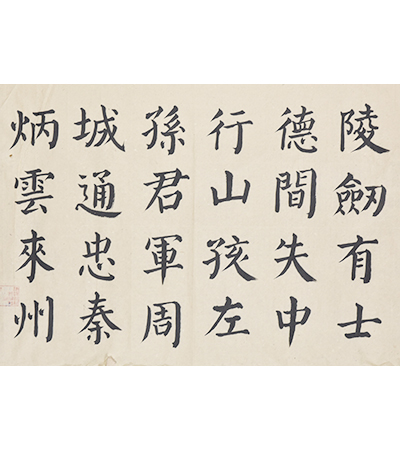 陵劔有士
德間失中
行山孩左
孫君軍周
城通忠秦
炳雲來州